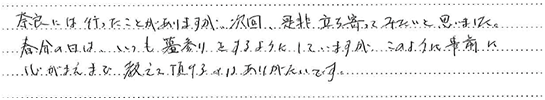 奈良には行ったことがありますが、次回、是非立ち寄ってみたいと思いました。
春分の日は、いつも墓参りをするようにしていますが、このように事前に
心がまえまで教えて頂けるのはありがたいです。